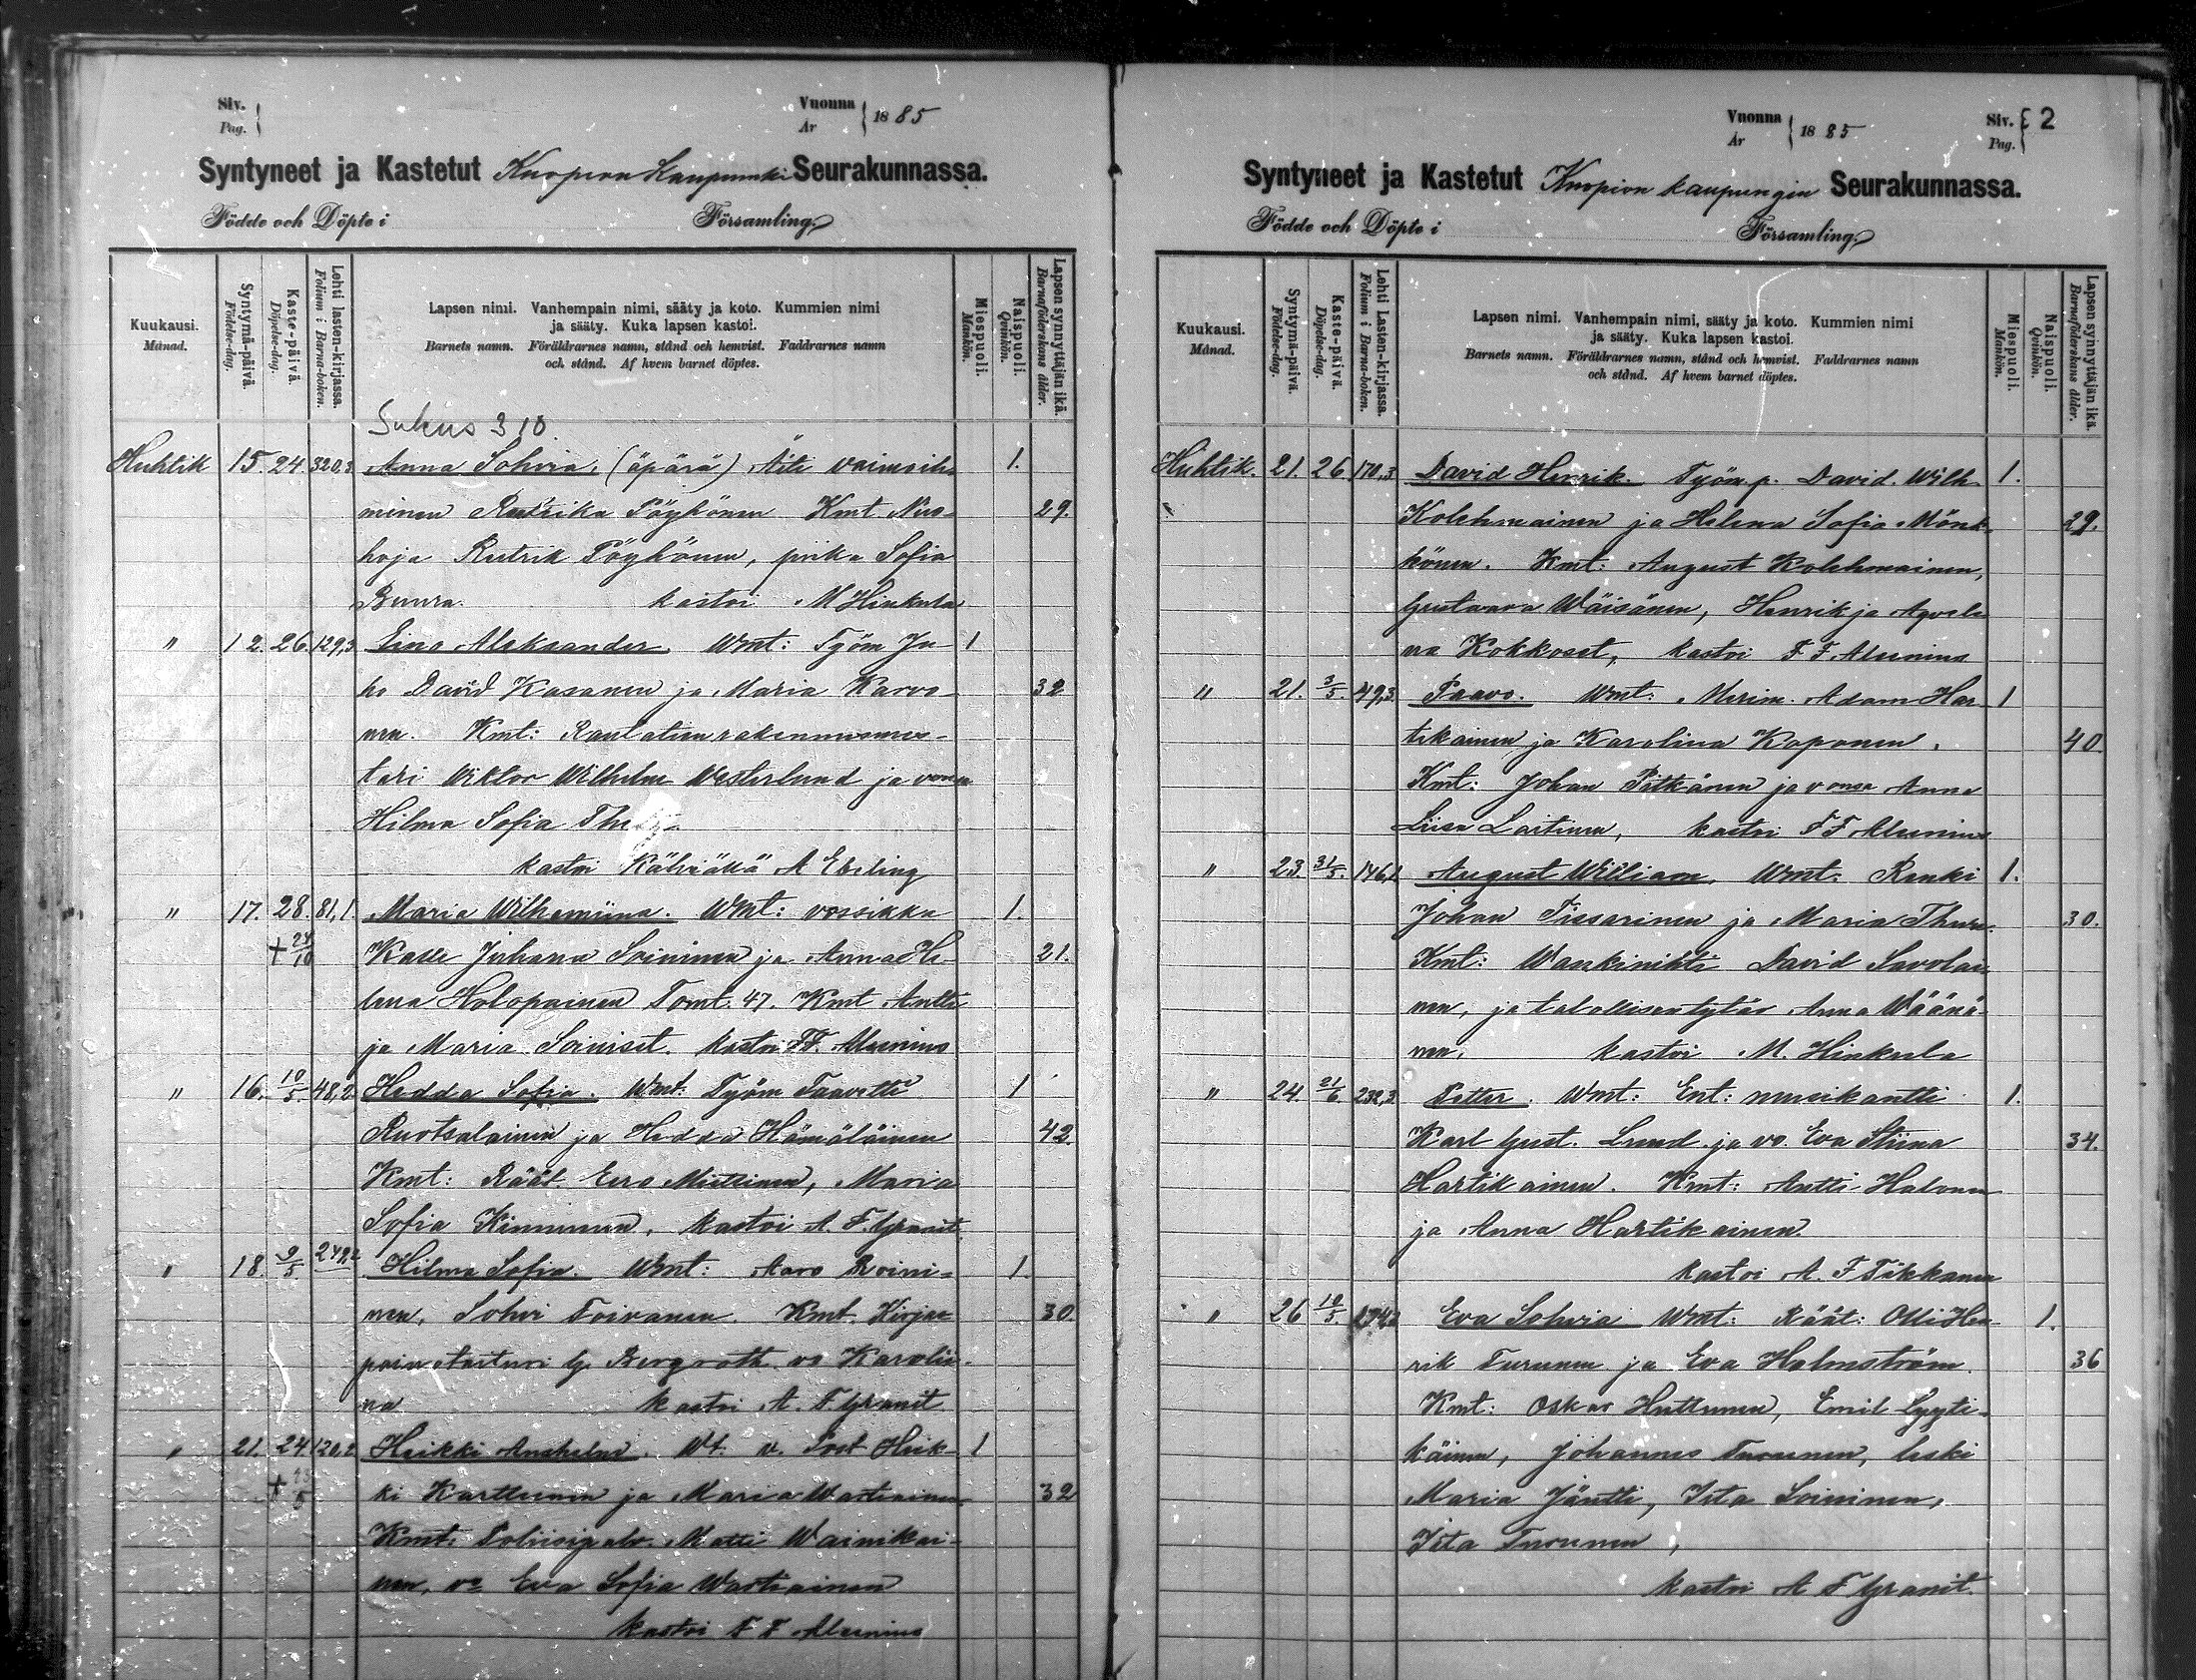 Siv.
Pag.
Vuonna
År
1885
Syntyneet ja Kastetut Kuopion Kaupunki Seurakunnassa.
Födde och Döpte i Församling.
Kuukausi.
Månad.
Syntymä-päivä.
Födelse-dag.
Kaste-päivä.
Döpelse-dag.
Lehti lasten-kirjassa.
Folium i Barna-boken.
Lapsen nimi. Vanhempain nimi, sääty ja koto. Kummien nimi
ja sääty. Kuka lapsen kastoi.
Barnets namn. Föräldrarnes namn, stånd och hemvist. Faddrarnes namn
och stånd. Af hvem barnet döptes.
Miespuoli.
Mankön.
Naispuoli.
Qvinkön.
Lapsen synnyttäjän ikä.
Barnaföderskans ålder.
310
Huhtik 15. 24. 320,3 Anna Sohvia. (äpärä) Äiti vaimoih= 1.
minen Pöyhönen Kmt. Nuo= 29.
hoja Pöyhönen, piika Sofia
kastoi M Hinkula
" 12. 26. 129,3 Eino Aleksander. Wmt: Työm Ju= 1
ho David Kasanen ja Maria Karvo= 32
nen. Kmt: Rautatienrakennusmes=
tari Wiktor Wilhelm Westerlund ja vonsa
Hilma Sofia
kastoi A Ebeling
" 17. 28. 81,1. Maria Wilhemiina. Wmt: vossikka 1.
+ 24/10 Kalle Juhana Soininen ja Anna He= 21.
lena Holopainen Tomt. 47. Kmt Antti
ja Maria Soiniset. kastoi F.F. Alcenius
" 16. 10/5 48,2 Hedda Sofia. Wmt: Työm Taavetti 1
Ruotsalainen ja Hedda Hämäläinen 42.
Kmt: Räät. Eero Miettinen, Maria
Sofia Kinnunen. kastoi A. F. Granit
" 18. 9/5 249,2 Hilma Sofia. Wmt: Aaro Roini= 1.
nen, Sohvi Toivanen. Kmt. Kirjan 30.
painattaituri G. Bergroth vo Karolii=
na kastoi A. F. Granit
" 21. 24. 120,2 Heikki Anshelm. Wt. v. Post Heik= 1
+ 5 ki Karttunen ja Maria Wartiainen 32
Kmt: Poliisipalv. Matti Wainikai=
nen, vo Eva Sofia Wartiainen
kastoi F F Alcenius
Vuonna
År
1885
Siv.
Pag.
2
Syntyneet ja Kastetut Kuopion kaupungin Seurakunnassa.
Födde och Döpte i Församling.
Kuukausi.
Månad.
Syntymä-päivä.
Födelse-dag.
Kaste-päivä.
Döpelse-dag.
Lehti Lasten-kirjassa.
Folium i Barna-boken.
Lapsen nimi. Vanhempain nimi, sääty ja koto. Kummien nimi
ja sääty. Kuka lapsen kastoi.
Barnets namn. Föräldrarnes namn, stånd och hemvist. Faddrarnes namn
och stånd. Af hvem barnet döptes.
Miespuoli.
Mankön.
Naispuoli.
Qvinkön.
Lapsen synnyttäjän ikä.
Barnaföderskans ålder.
Huhtik. 21. 26. 170,3 David Henrik. Työm.p. David. Wilh. 1.
Kolehmainen ja Helena Sofia Mönk= 29.
könen. Kmt: August Kolehmainen,
Gustaava Wäisänen, Henrik ja Agvele
na Kokkoset, kastoi F F Alcenius
" 21. 3/5. 49,3. Paavo. Wmt: Merim. Adam Har= 1
tikainen ja Karolina Koponen. 40.
Kmt: Johan Pitkänen ja vonsa Anna
Liisa Laitinen, kastoi F F Alcenius
" 23. 31/5. 146,1 August William. Wmt: Renki 1.
Johan Tissarinen ja Maria Thure. 30.
Kmt: Wankinihti David Savolai
nen, ja talollisentytär Anna Wäänä=
nen. kastoi M. Hinkula
" 24 21/6 232,3. Petter. Wmt: Ent: musikantti 1.
Karl Gust. Lund ja vo. Eva Stiina 34.
Hartikainen. Kmt: Antti Halonen
ja Anna Hartikainen.
kastoi A. F Tikkanen
" 26 10/5 Eva Sohvia Wmt: Räät: Olli Hen= 1.
rik Turunen ja Eva Holmström. 36
Kmt: Oskar Huttunen, Emil Lyyti=
käinen, Johannes Turunen, leski
Maria Jäntti, Iita Soininen,
Iita Turunen,
kastoi A F Granit.